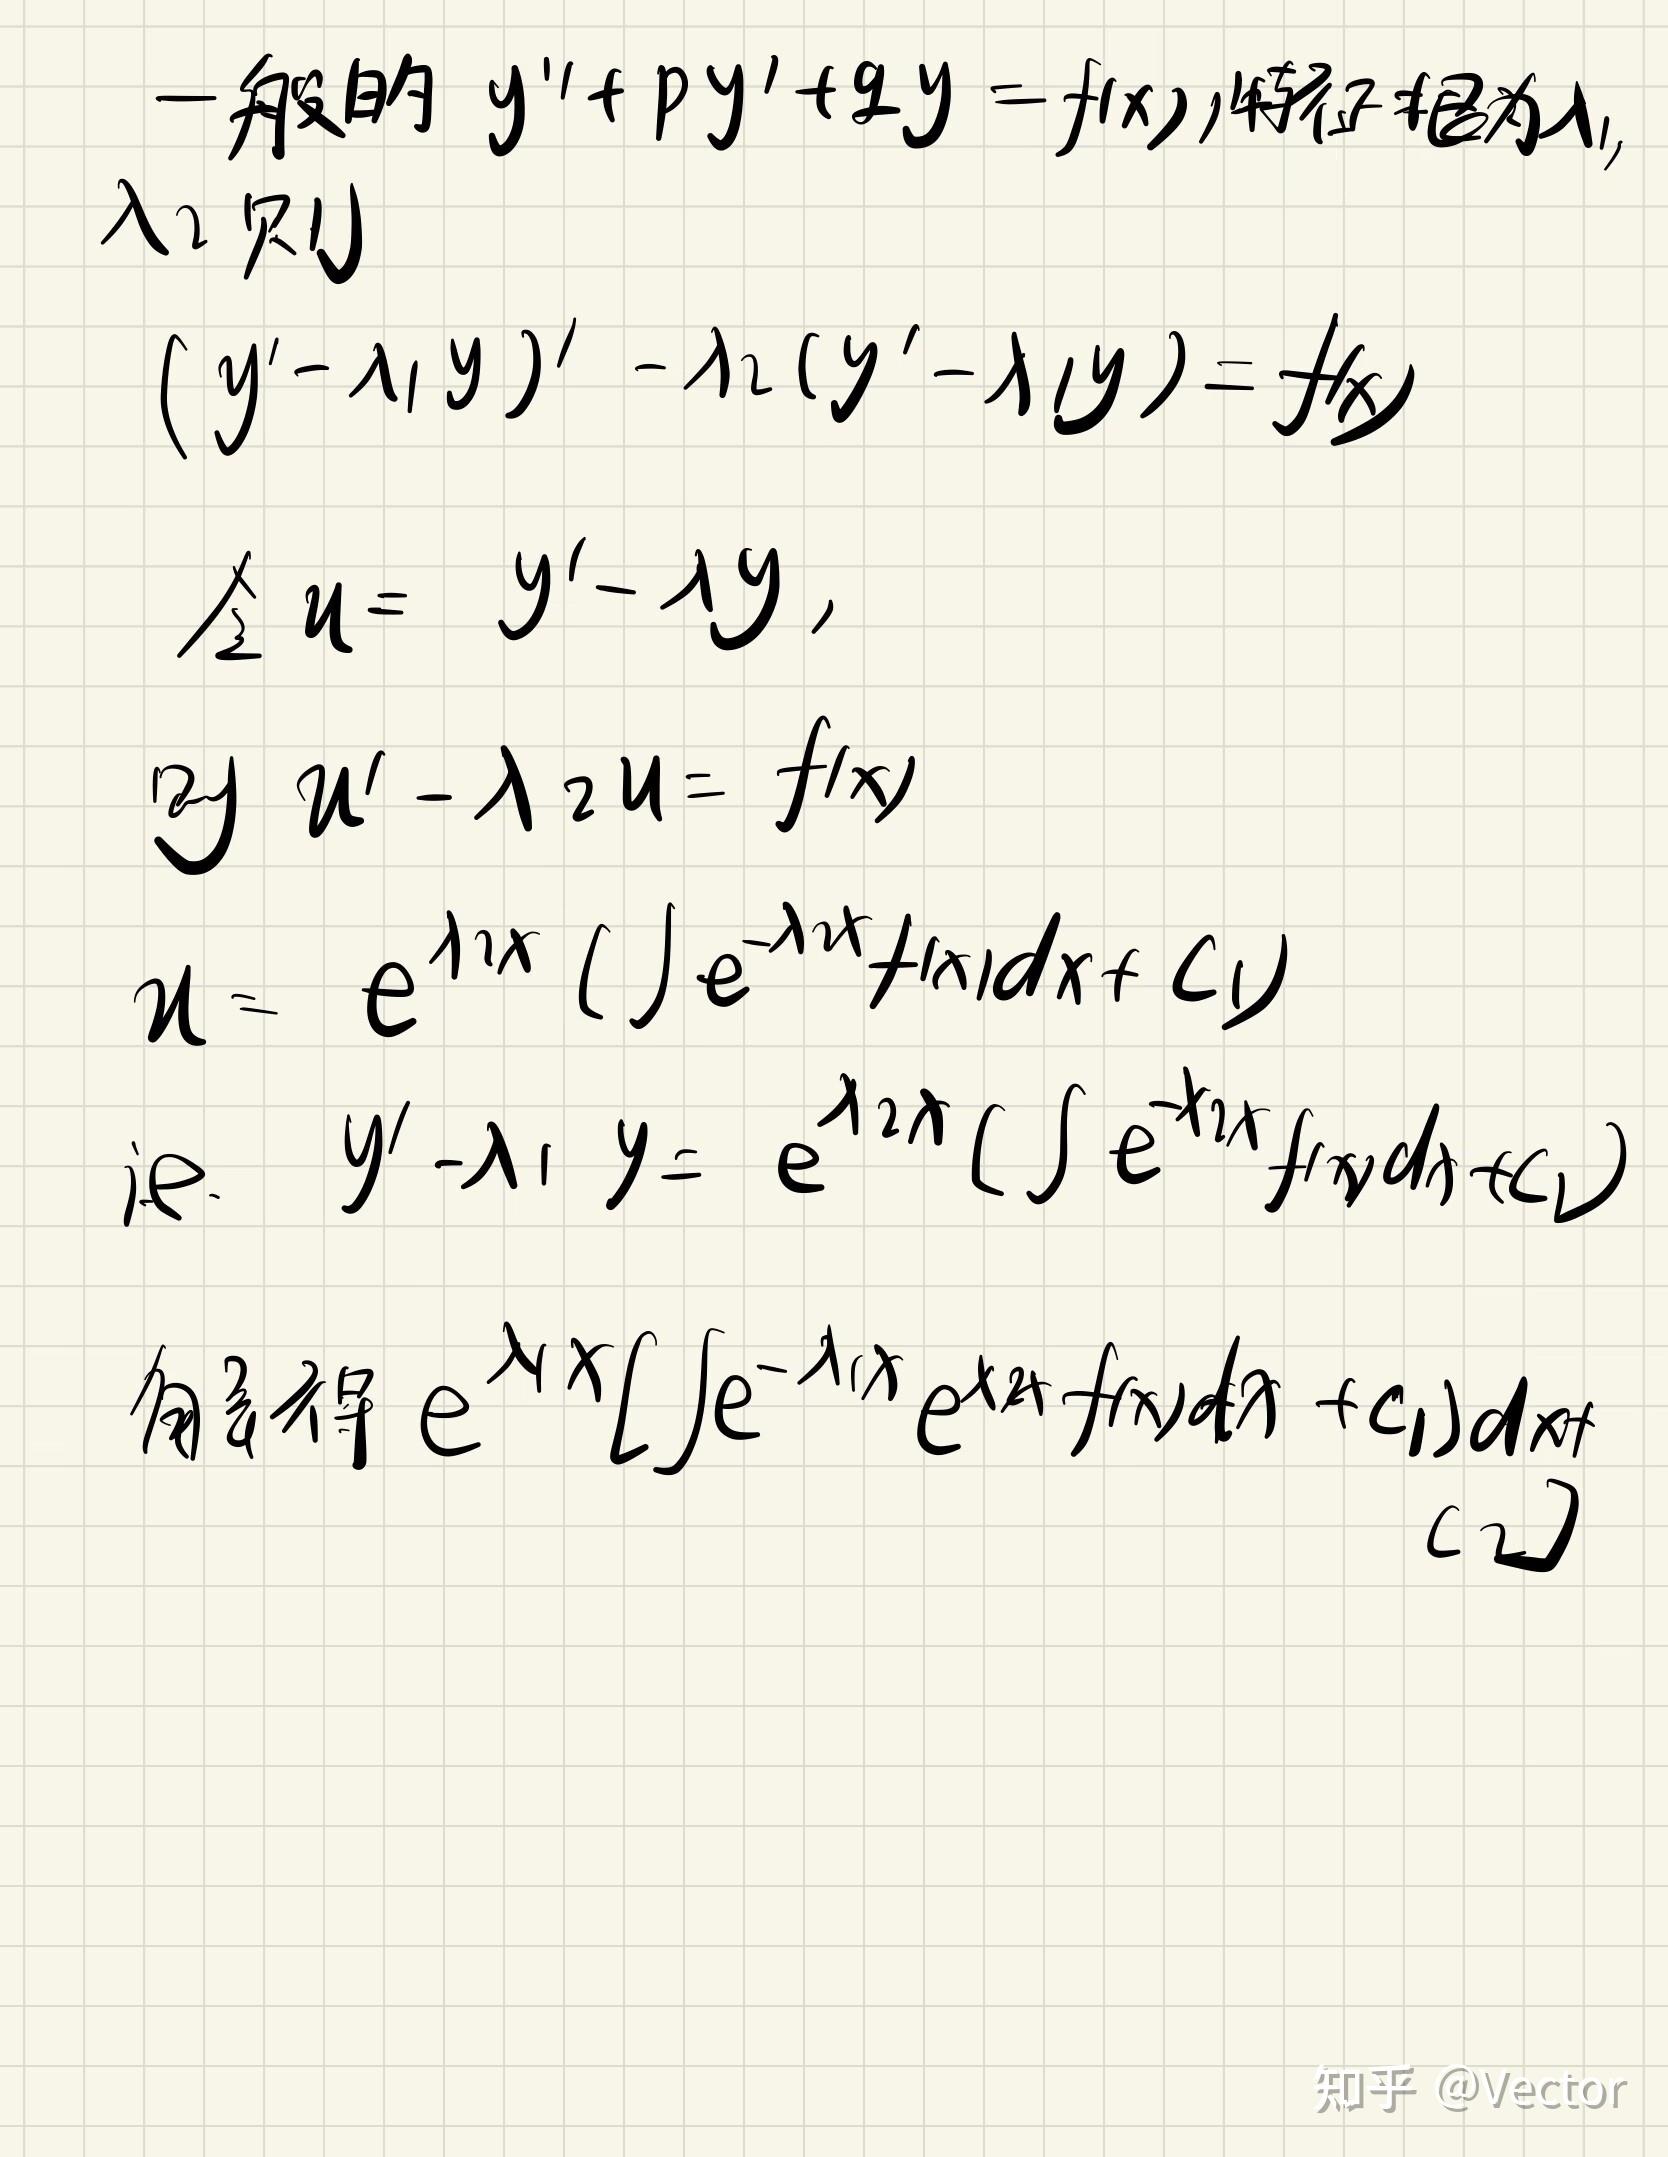 一般的 y''+py'+qy=f(x),特征根为λ1,
λ2则
(y'-λ1y)'-λ2(y'-λ1y)=f(x)
令u= y'-λy,
则 u'-λ2u=f(x)
u= e^λ2x(∫e^-λ2x f(x)dx+C1)
i.e. y'-λ1y= e^λ2x(∫e^-λ2x f(x)dx+C1)
解得 e^λ1x[∫e^-λ1x e^λ2x f(x)dx+C1)dx+
C2]
知乎 @Vector